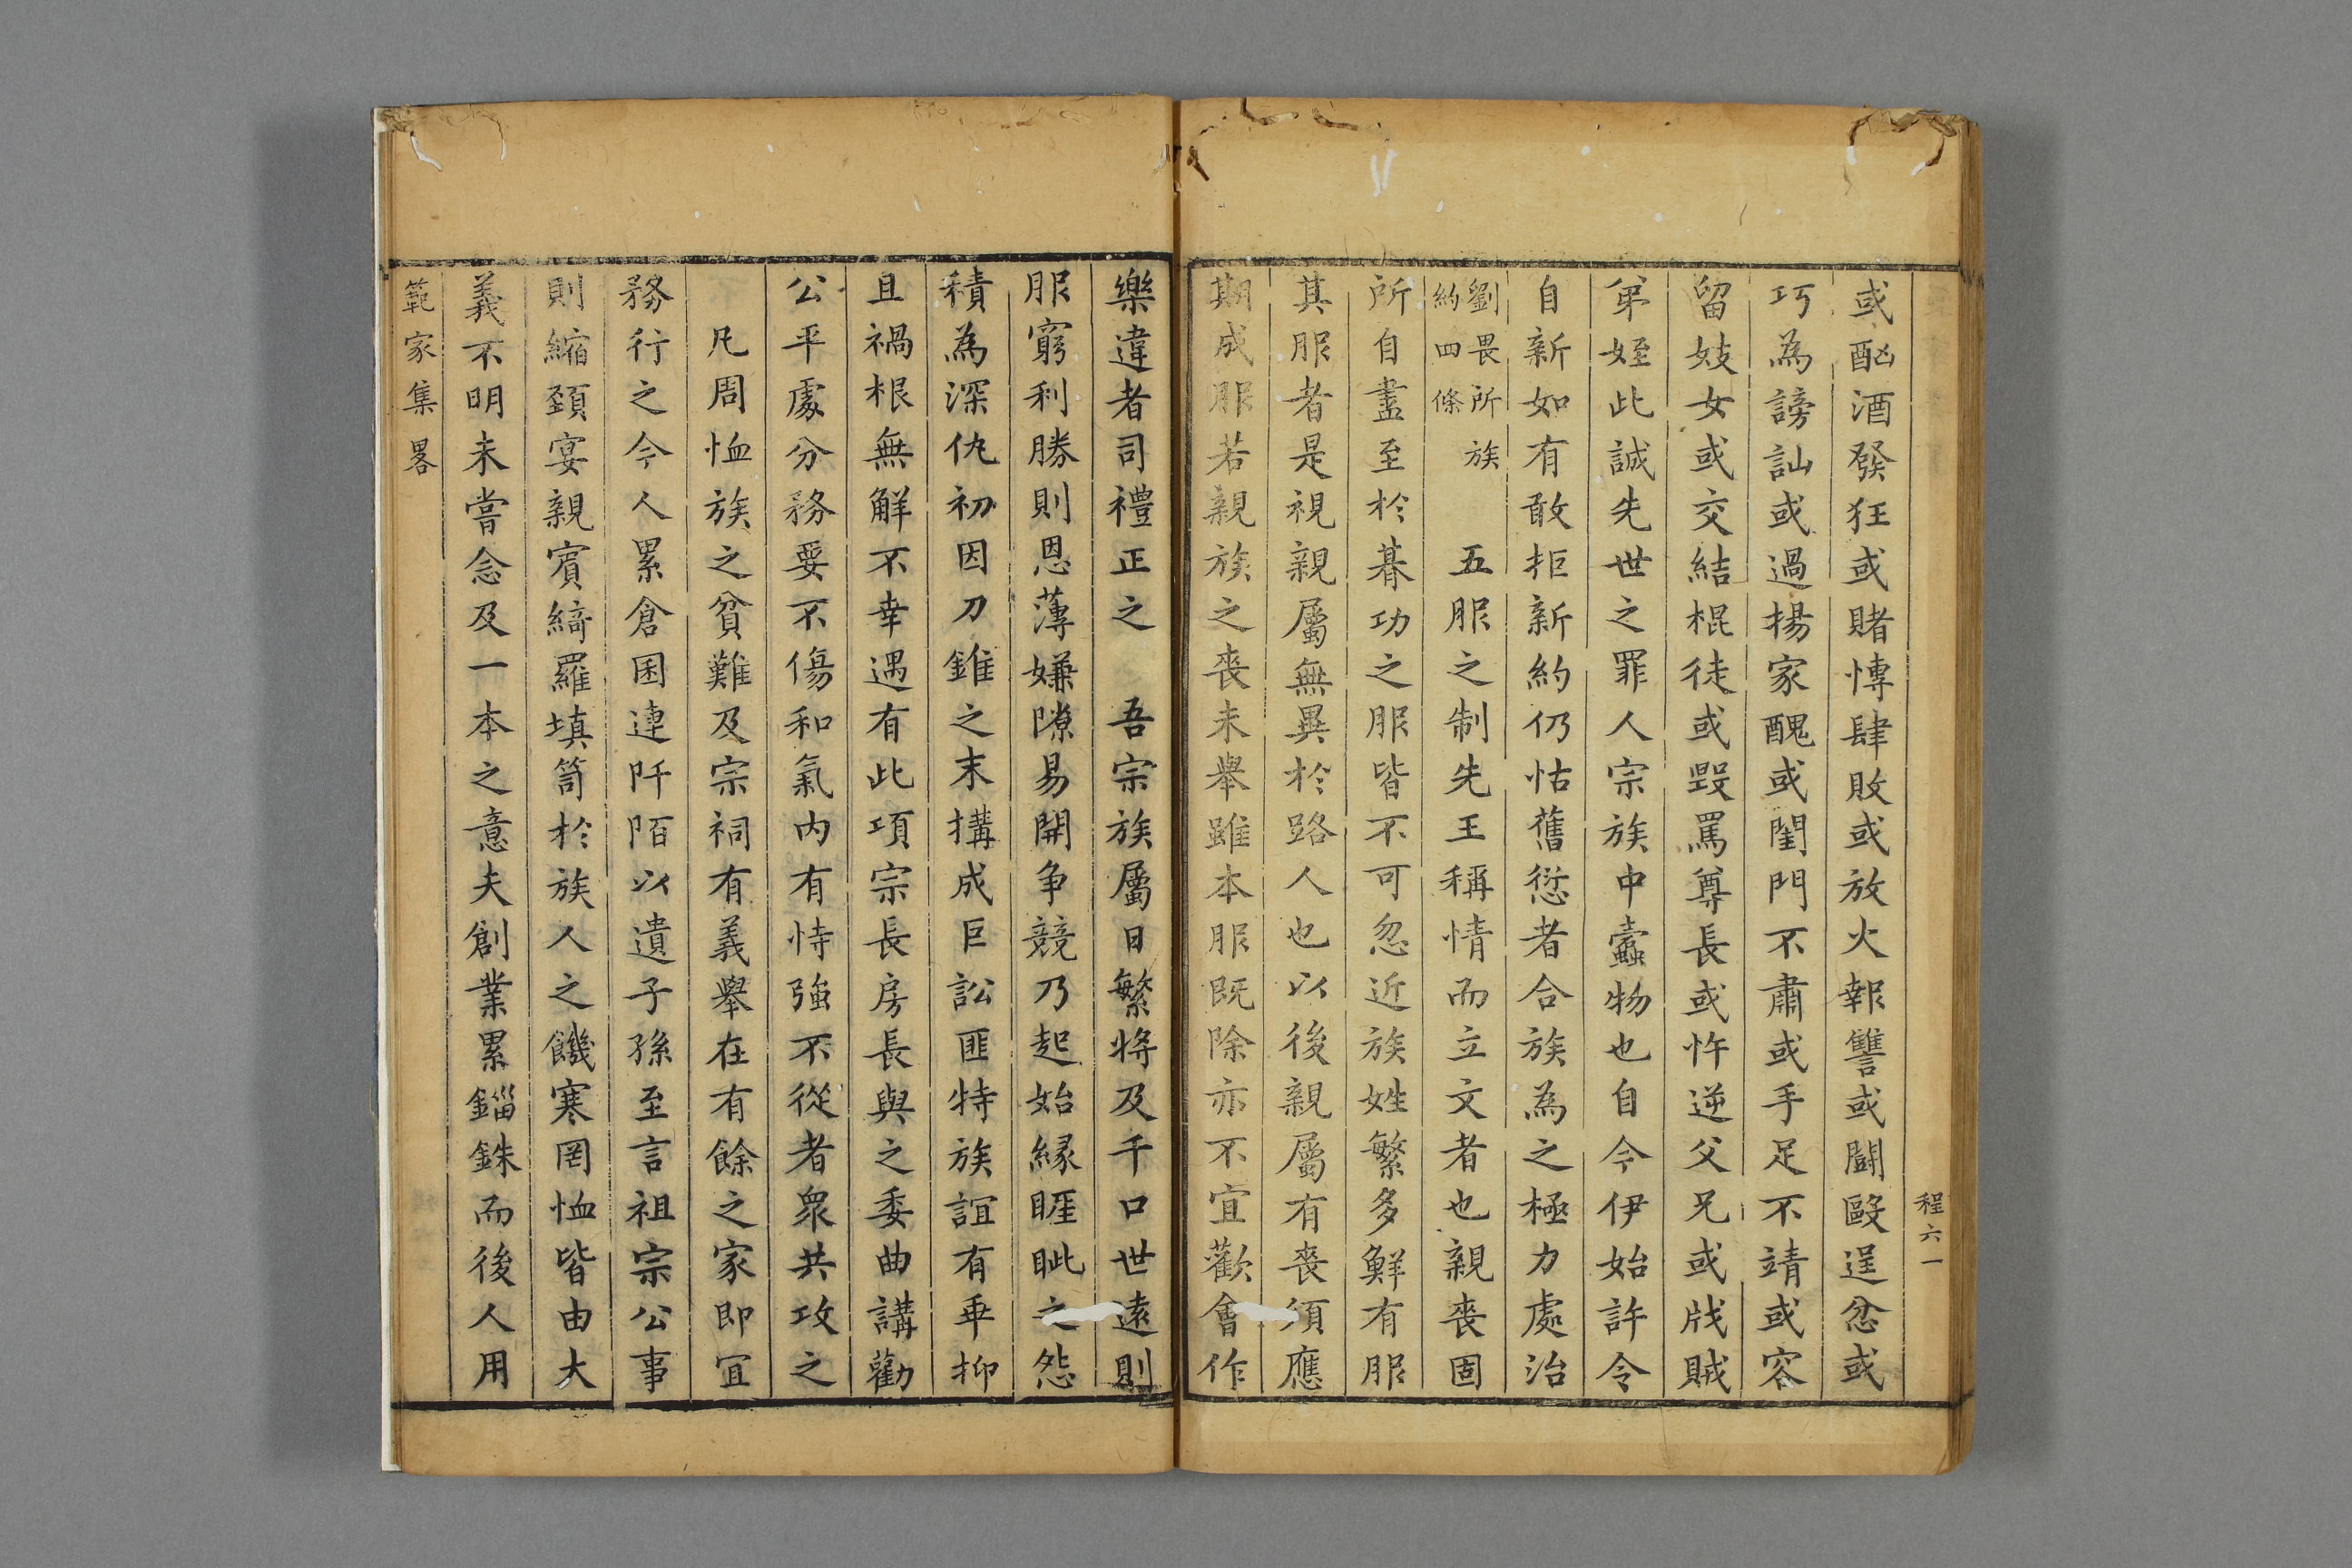 程六一
或酗酒發狂或賭博肆敗或放火報讐或鬪毆逞忿或
巧為謗訕或過揚家醜或閨門不肅或手足不靖或容
留妓女或交結棍徒或毀罵尊長或忤逆父兄或戕賊
弟姪此誠先世之罪人宗族中蠹物也自今伊始許令
自新如有敢拒新約仍怙舊愆者合族為之極力處治
劉畏所族
約四條
五服之制先王稱情而立文者也親喪固
所自盡至於朞功之服皆不可忽近族姓繁多鮮有服
其服者是視親屬無異於路人也以後親屬有喪須應
期成服若親族之喪未舉雖本服既除亦不宜歡會作
樂違者司禮正之　吾宗族屬日繁將及千口世遠則
服窮利勝則恩薄嫌隙易開爭競乃起始緣睚眦之怨
積為深仇初因刀錐之末搆成巨訟匪特族誼有乖抑
且禍根無解不幸遇有此項宗長房長與之委曲講勸
公平處分務要不傷和氣內有恃強不從者眾共攻之
凡周恤族之貧難及宗祠有義舉在有餘之家即宜
務行之今人累倉困連阡陌以遺子孫至言祖宗公事
則縮頸宴親賓綺羅填笥於族人之饑寒罔恤皆由大
義不明未嘗念及一本之意夫創業累錙銖而後人用
範家集畧